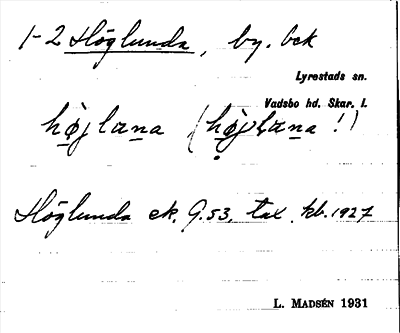 1-2 Höglunda, by. bek
Lyrestads sn.
Vadsbo hd. Skar. l.
hø̀jlana (hø̣̀jlana !)
Höglunda ek. G. 53. tax. kb. 1927
L. MADSÉN 1931